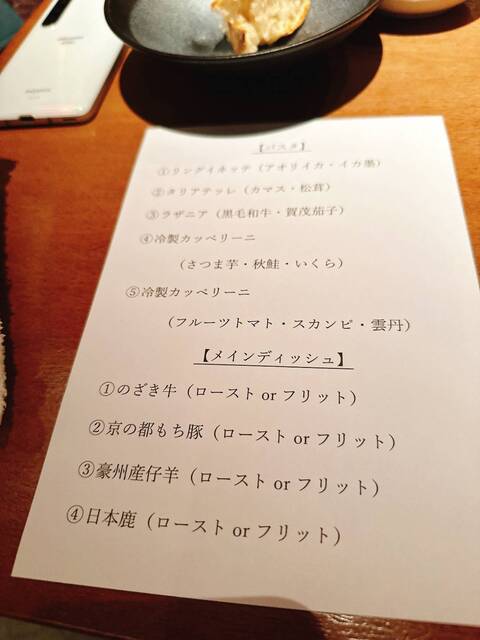 【パスタ】
①リングイネッテ（アオリイカ・イカ墨）
②タリアテッレ（カマス・松茸）
③ラザニア（黒毛和牛・賀茂茄子）
④冷製カッペリーニ
（さつま芋・秋鮭・いくら）
⑤冷製カッペリーニ
（フルーツトマト・スカンピ・雲丹）
【メインディッシュ】
①のざき牛（ロースト or フリット）
②京の都もち豚（ロースト or フリット）
③豪州産仔羊（ロースト or フリット）
④日本鹿（ロースト or フリット）